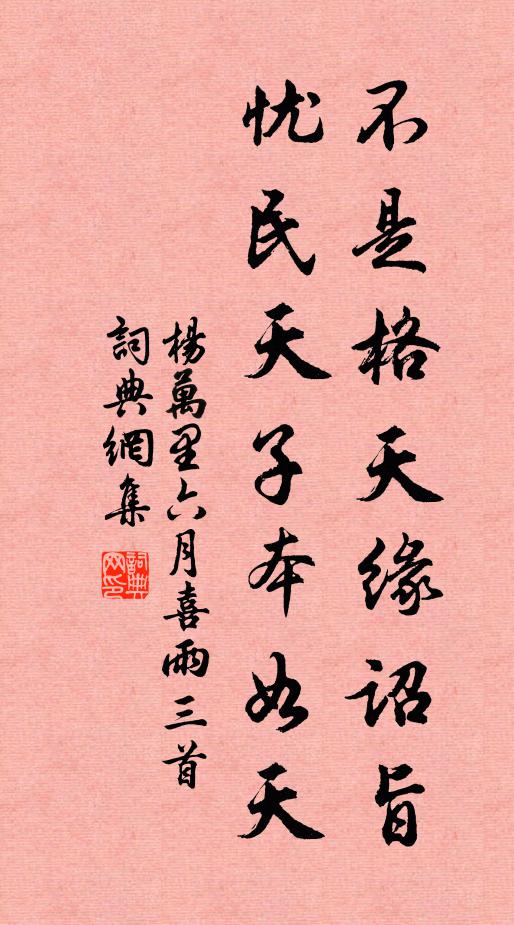 不是格天緣詔旨
忧民天子本如天
楊萬里六月喜雨三首
詞典網集
詞典网印